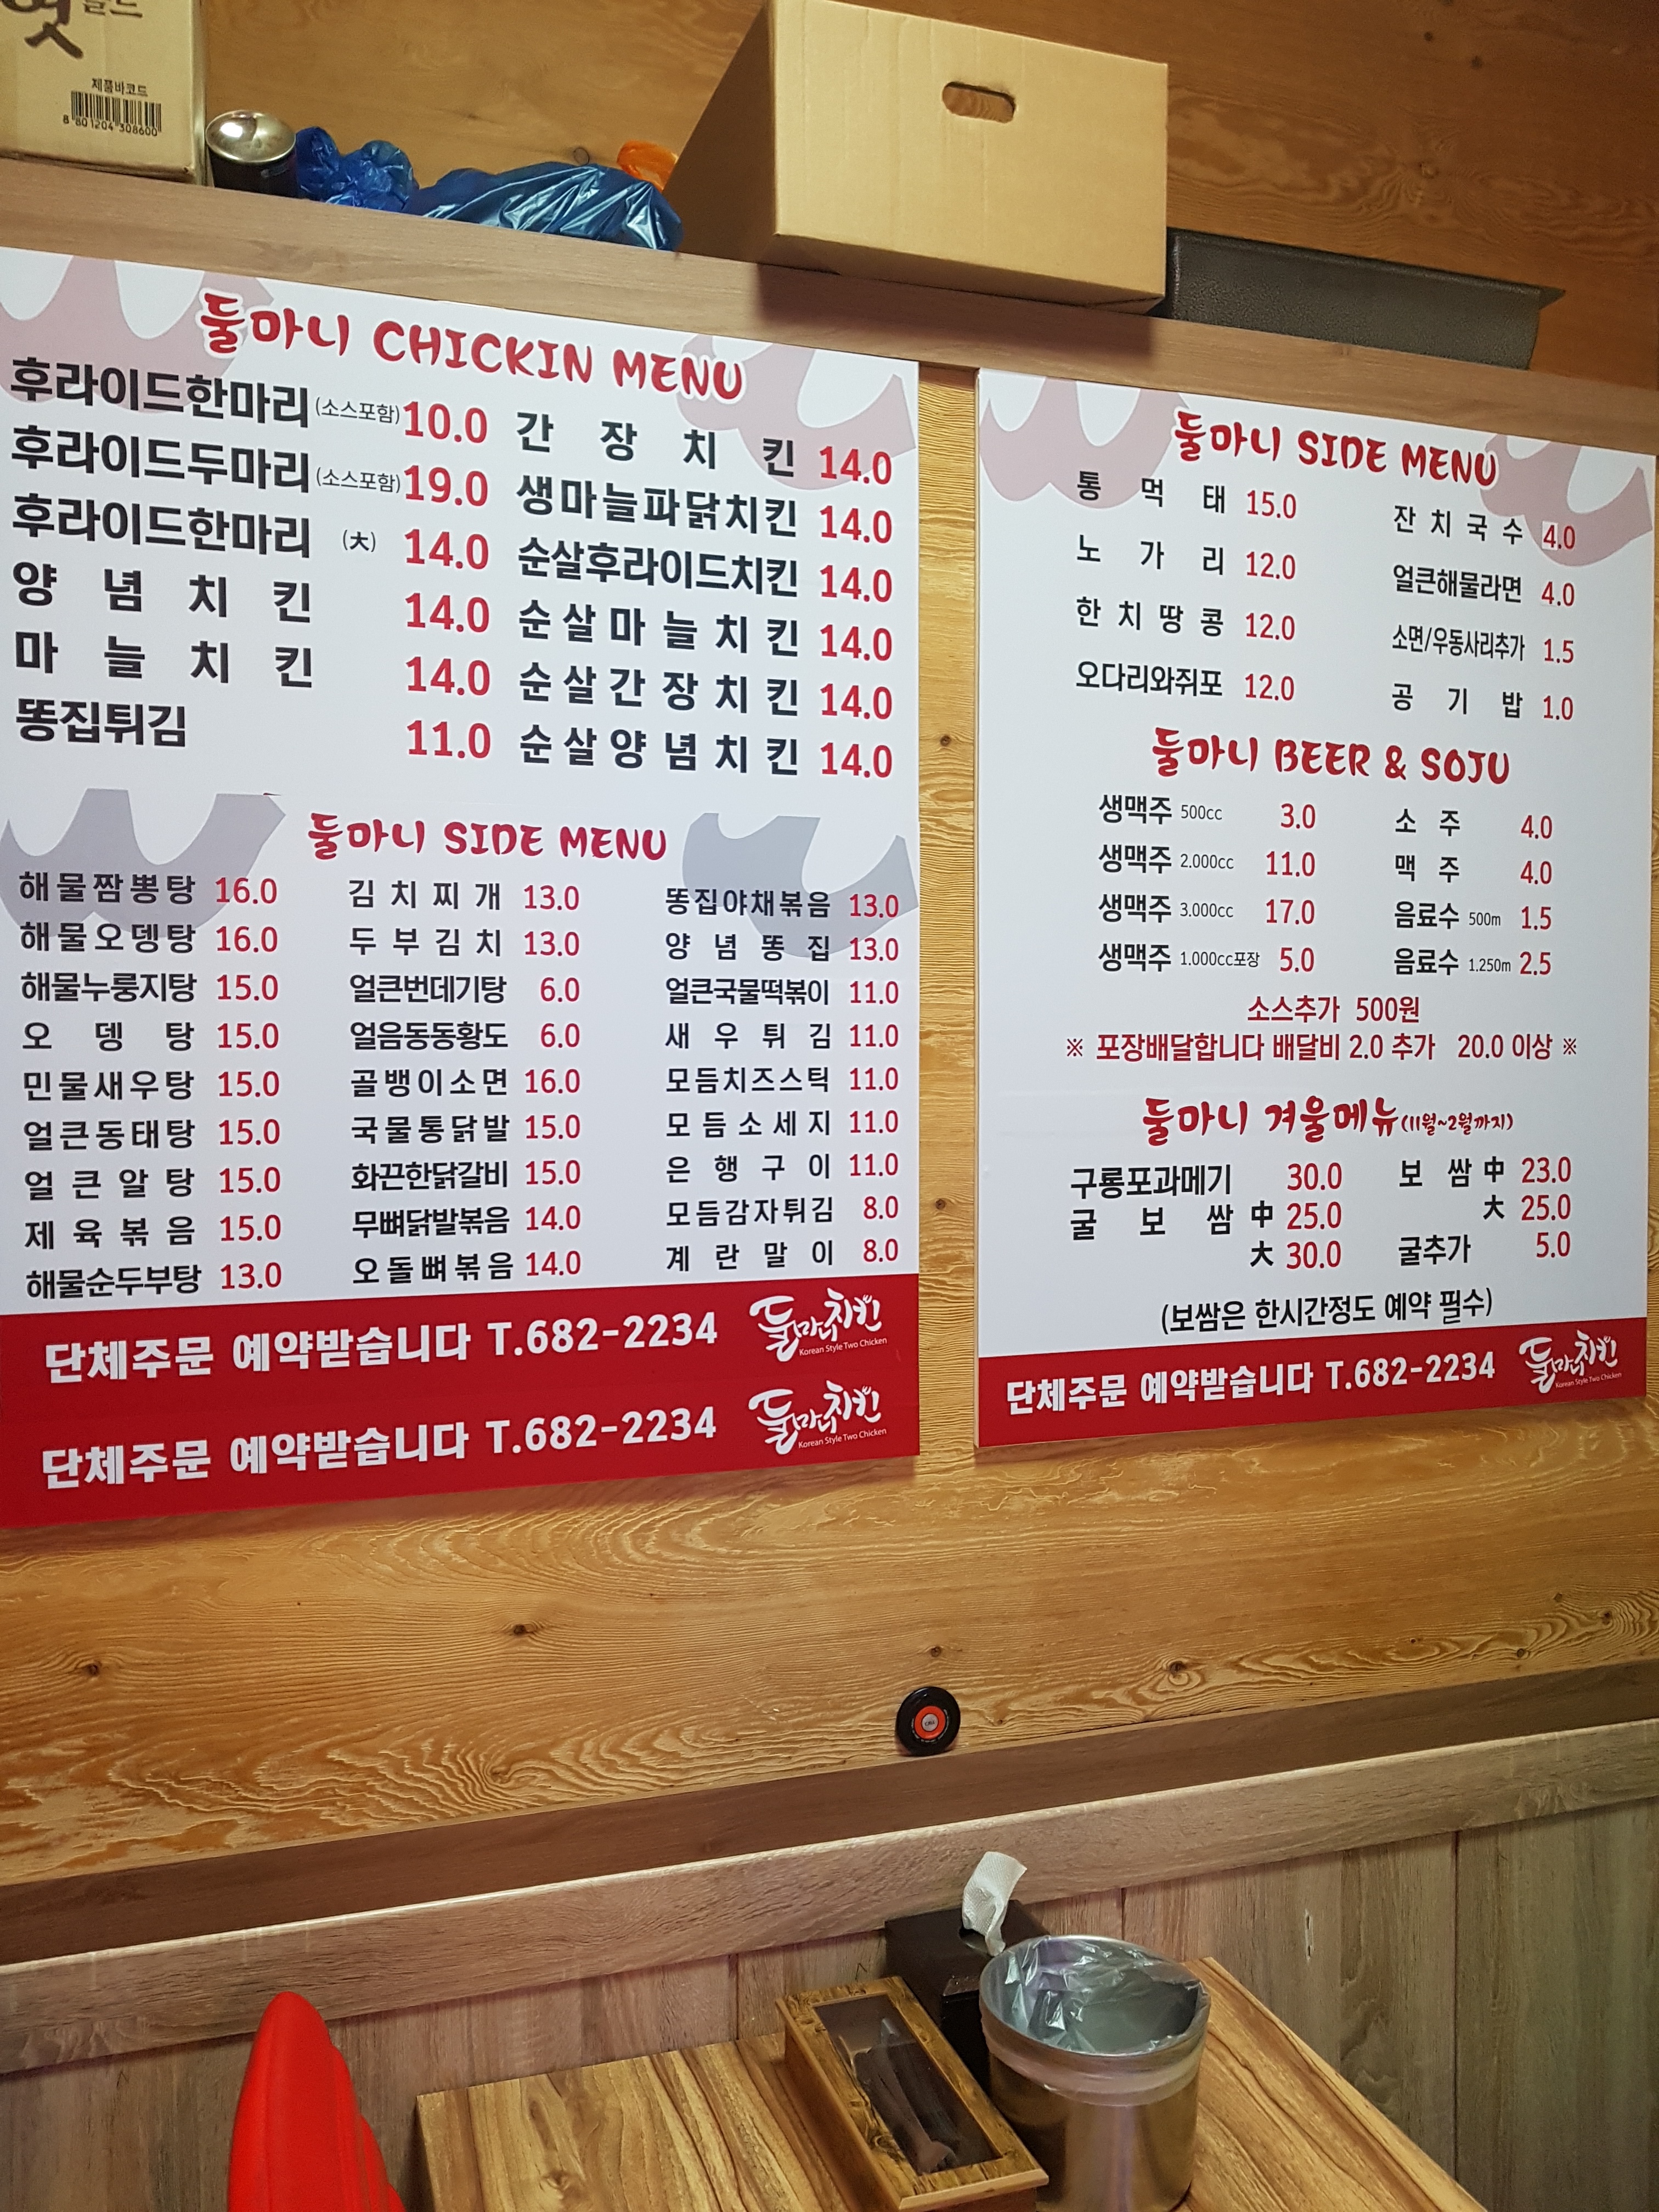 골드
엿
제품바코드
8 801204 308600
둘마니 CHICKIN MENU
후라이드한마리 (소스포함) 10.0
후라이드두마리 (소스포함) 19.0
후라이드한마리 (大) 14.0
양념치킨 14.0
마늘치킨 14.0
똥집튀김 11.0
간장치킨 14.0
생마늘파닭치킨 14.0
순살후라이드치킨 14.0
순살마늘치킨 14.0
순살간장치킨 14.0
순살양념치킨 14.0
둘마니 SIDE MENU
해물짬뽕탕 16.0
해물오뎅탕 16.0
해물누룽지탕 15.0
오뎅탕 15.0
민물새우탕 15.0
얼큰동태탕 15.0
얼큰알탕 15.0
제육볶음 15.0
해물순두부탕 13.0
김치찌개 13.0
두부김치 13.0
얼큰번데기탕 6.0
얼음동동황도 6.0
골뱅이소면 16.0
국물통닭발 15.0
화끈한닭갈비 15.0
무뼈닭발볶음 14.0
오돌뼈볶음 14.0
똥집야채볶음 13.0
양념똥집 13.0
얼큰국물떡볶이 11.0
새우튀김 11.0
모듬치즈스틱 11.0
모듬소세지 11.0
은행구이 11.0
모듬감자튀김 8.0
계란말이 8.0
단체주문 예약받습니다 T.682-2234 둘마니치킨
Korean Style Two Chicken
단체주문 예약받습니다 T.682-2234 둘마니치킨
Korean Style Two Chicken
둘마니 SIDE MENU
통먹태 15.0
노가리 12.0
한치땅콩 12.0
오다리와쥐포 12.0
잔치국수 4.0
얼큰해물라면 4.0
소면/우동사리추가 1.5
공기밥 1.0
둘마니 BEER & SOJU
생맥주 500cc 3.0
생맥주 2.000cc 11.0
생맥주 3.000cc 17.0
생맥주 1.000cc포장 5.0
소주 4.0
맥주 4.0
음료수 500m 1.5
음료수 1.250m 2.5
소스추가 500원
※ 포장배달합니다 배달비 2.0 추가 20.0 이상 ※
둘마니 겨울메뉴(11월~2월까지)
구룡포과메기 30.0
굴보쌈 中 25.0
大 30.0
보쌈 中 23.0
大 25.0
굴추가 5.0
(보쌈은 한시간정도 예약 필수)
단체주문 예약받습니다 T.682-2234 둘마니치킨
Korean Style Two Chicken